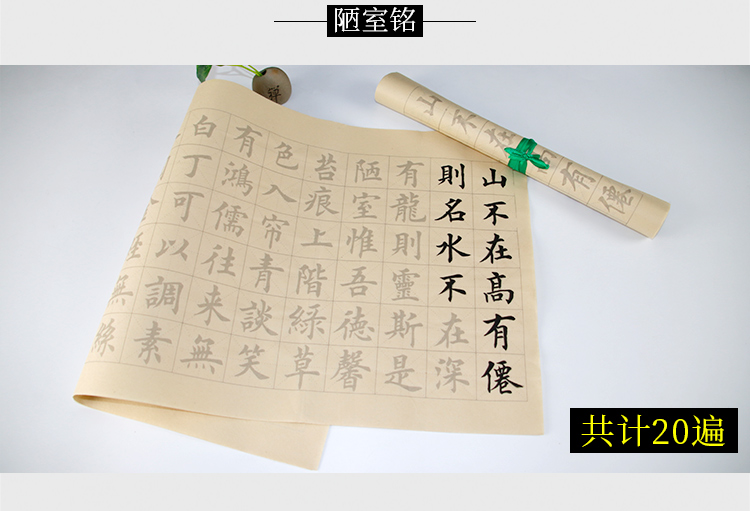 陋室铭
山不在髙有僊
則名水不在深
有龍則靈斯是
陋室惟吾德馨
苔痕上階綠草
色入帘青談笑
有鴻儒往来無
白丁可以調素
無絲
山不在有僊
共计20遍